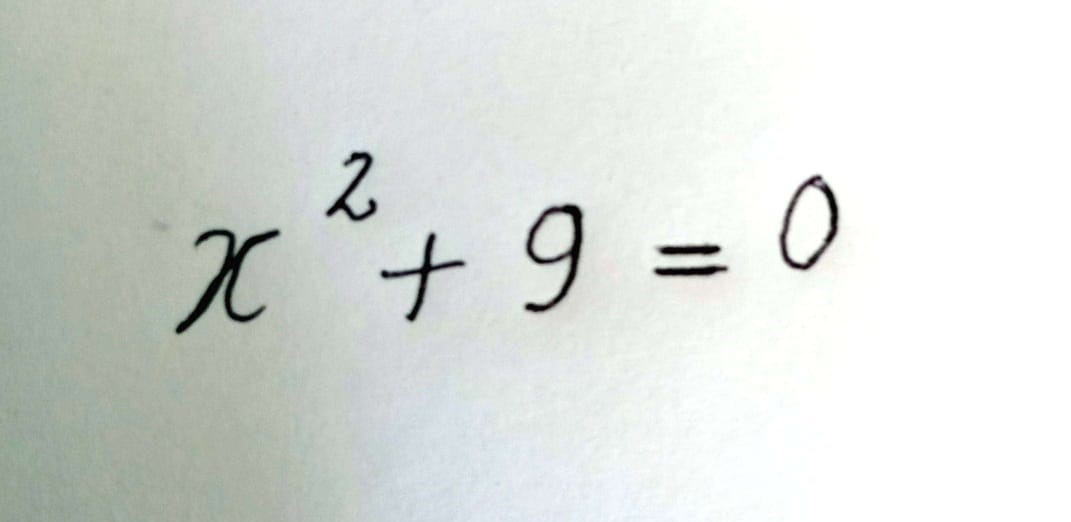 x² + 9 = 0